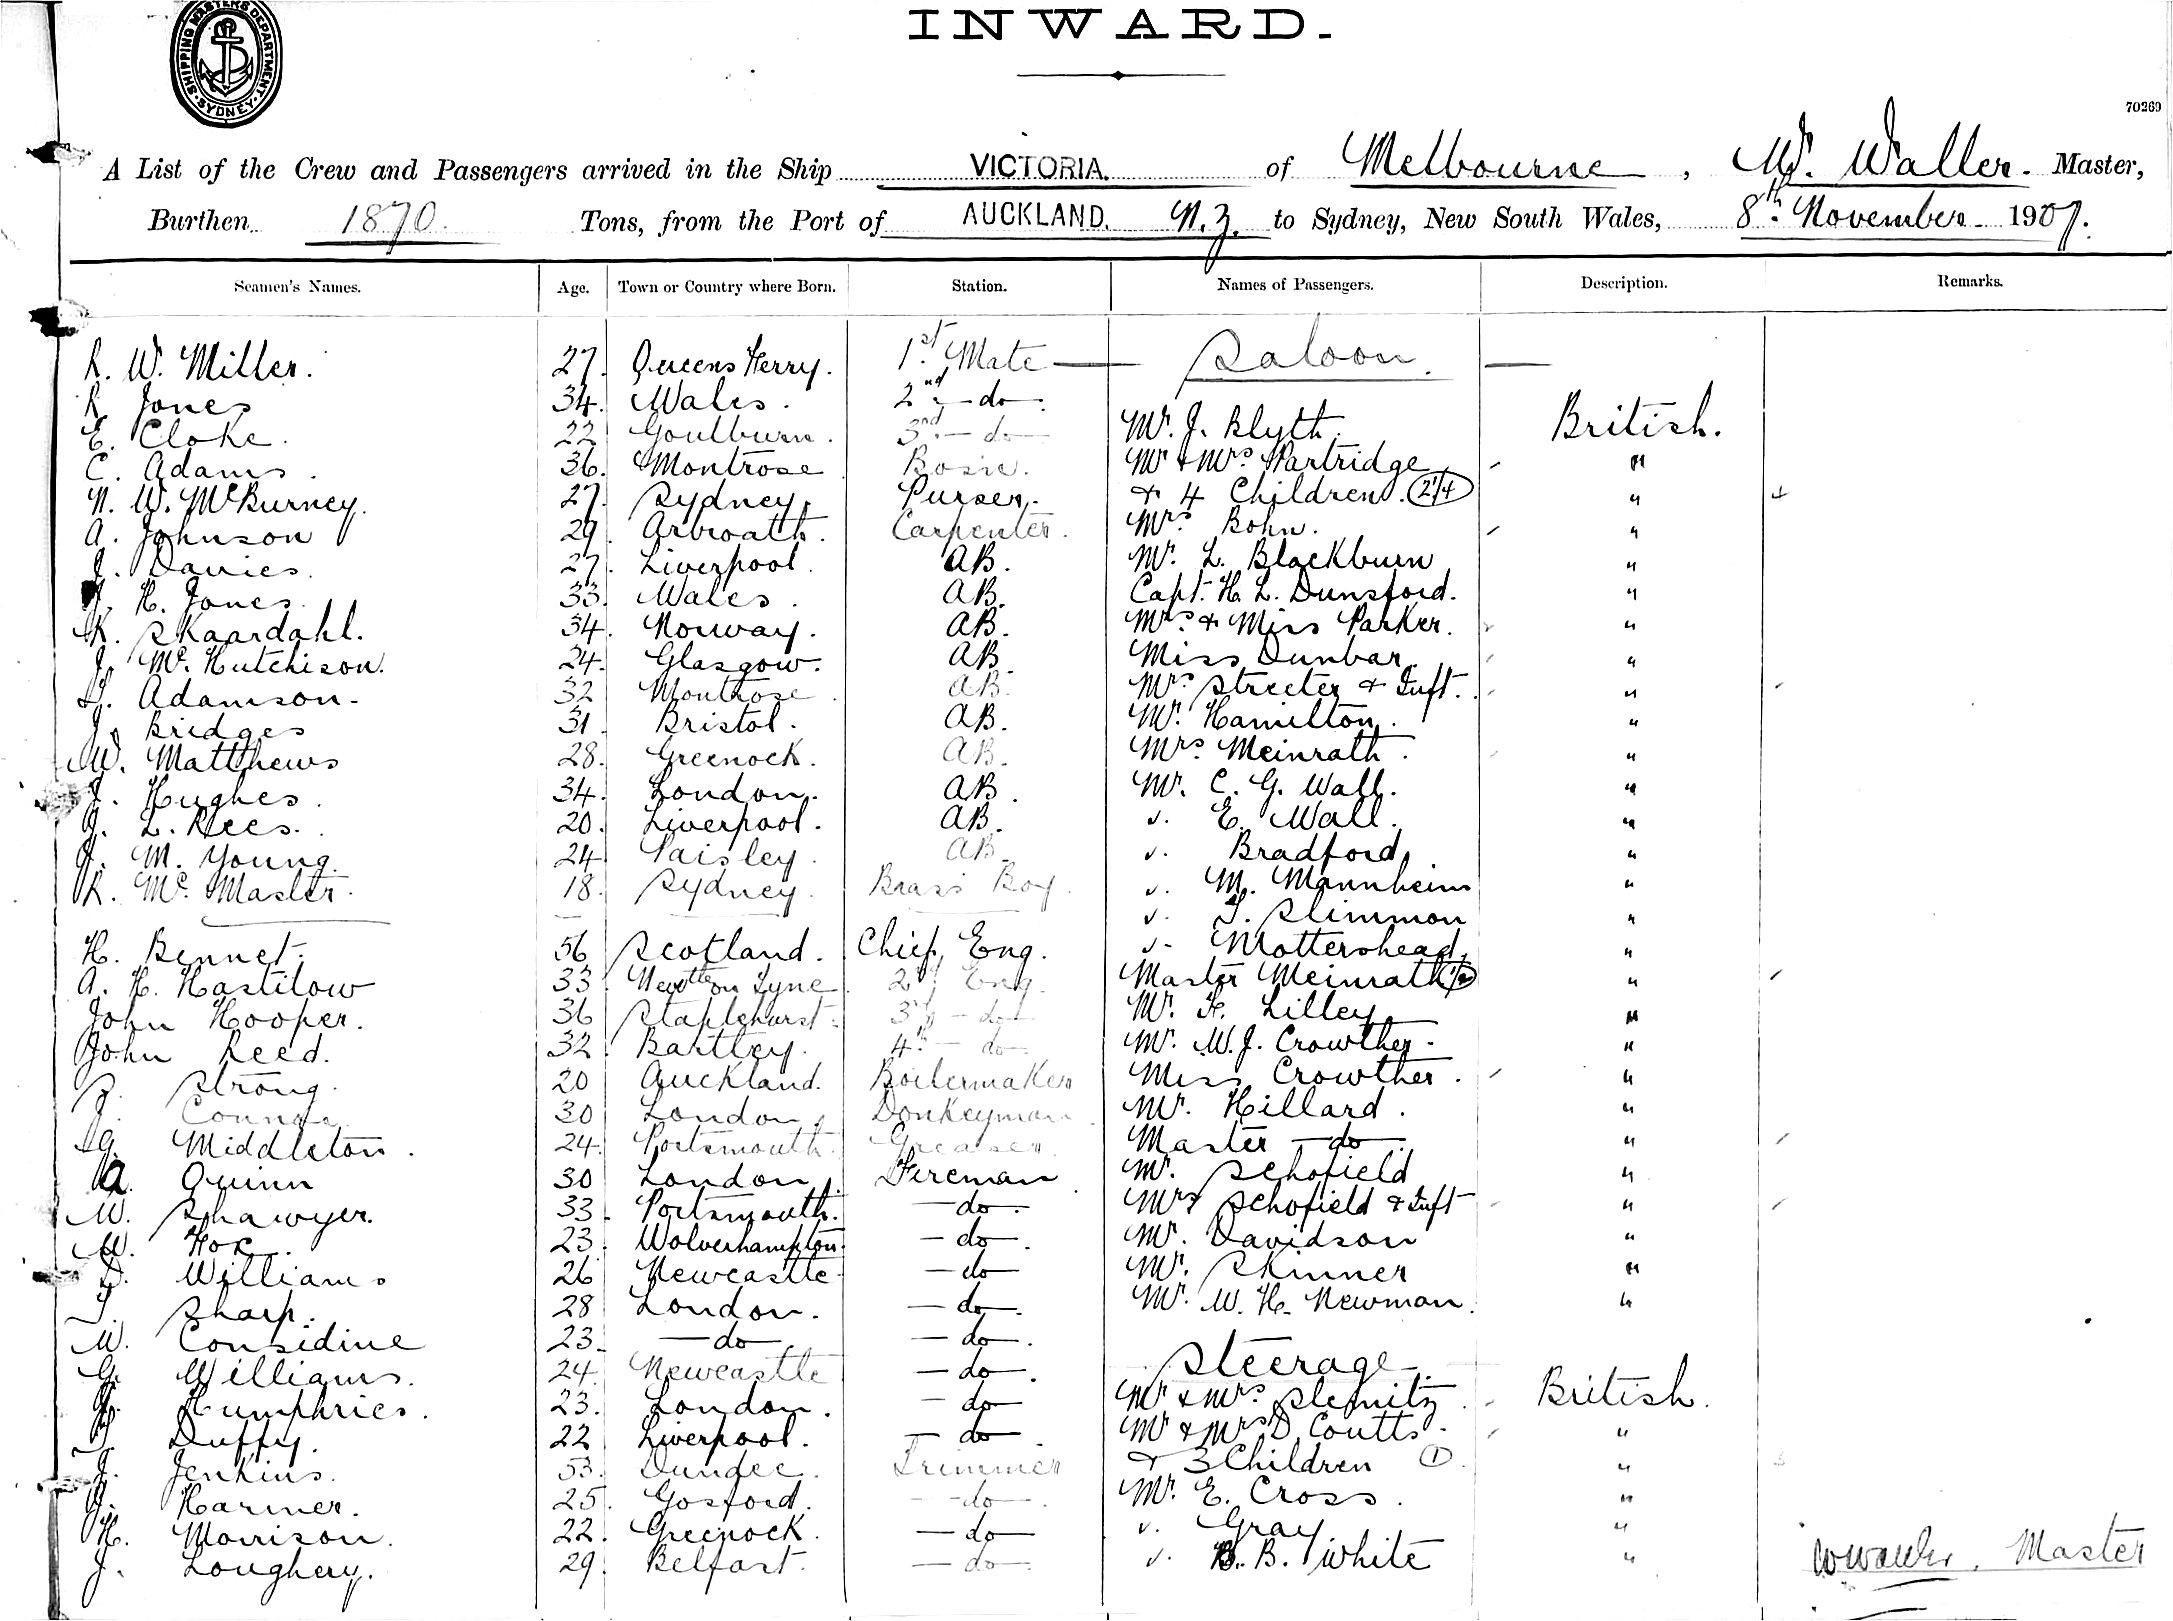 INWARD.
SHIPPING MASTERS DEPARTMENT. SYDNEY
70269
A List of the Crew and Passengers arrived in the Ship VICTORIA. of Melbourne, W. Waller. Master,
Burthen 1870. Tons, from the Port of AUCKLAND. N.Z. to Sydney, New South Wales, 8th November 1907.
Seamen's Names. Age. Town or Country where Born. Station. Names of Passengers. Description. Remarks.
R. W. Miller. 27. Queens Ferry. 1st Mate — Saloon. —
R Jones 34. Wales. 2nd — do —
E. Cloke. 22 Goulburn. 3rd — do — Mr. J. Blyth. British.
C. Adams. 36. Montrose Bosn. Mr & Mrs Partridge "
N. W. McBurney. 27. Sydney. Purser. & 4 Children. "
A. Johnson 29. Arbroath. Carpenter. Mrs Bohn. "
J. Davies. 27. Liverpool. AB. Mr. L. Blackburn "
J. H. Jones. 33. Wales. AB. Capt. H. L. Dunsford. "
K. Skaardahl. 34. Norway. AB. Mrs & Miss Parker. "
J. McHutchison. 24. Glasgow. AB. Miss Dunbar. "
Adamson. 32 Montrose AB. Mrs Streeter & Inft. "
J. Bridges 31. Bristol. AB. Mr. Hamilton. "
W. Matthews 28. Greenock. AB. Mrs Meinrath. "
J. Hughes. 34. London. AB. Mr. C. G. Wall. "
J. L. Rees. 20. Liverpool. AB. " E. Wall. "
J. M. Young. 24 Paisley. AB. " Bradford. "
R. McMaster. 18. Sydney. Brass Boy. " M. Mannheim "
" T. Slimmon "
H. Bennet. 56 Scotland. Chief Eng. " Mottershead. "
A. H. Hastilow 33 Newc on Tyne 2nd Eng. Master Meinrath "
John Hooper. 36 Staplehurst. 3rd — do — Mr. H. Lilley "
John Reed. 32 Bartley. 4th — do — Mr. W. J. Crowther. "
Strong. 20 Auckland. Boilermaker Miss Crowther. "
J. 30 London. Donkeyman Mr. Hillard. "
G. Middleton. 24. Portsmouth. Greaser Master — do — "
A. Quinn 30 London. Fireman Mr. Schofield "
W. Shawyer. 33. Portsmouth. — do — Mrs Schofield & Inft "
W. Fox. 23. Wolverhampton. — do — Mr. Davidson "
Williams 26 Newcastle. — do — Mr. Skinner "
Sharp. 28 London. — do — Mr. W. H. Newman. "
W. Considine 23. — do — — do —
G. Williams. 24. Newcastle — do — Steerage
Humphries. 23. London. — do — Mr & Mrs British.
Duffy. 22 Liverpool. — do — Mr & Mrs D. Coutts. "
J. Jenkins. 53. Dundee. Trimmer & 3 Children ① "
J. Harmer. 25. Gosford. — do — Mr. E. Cross. "
H. Morrison. 22. Greenock. — do — " Gray. "
J. Loughery. 29. Belfast. — do — " B. B. White " Master